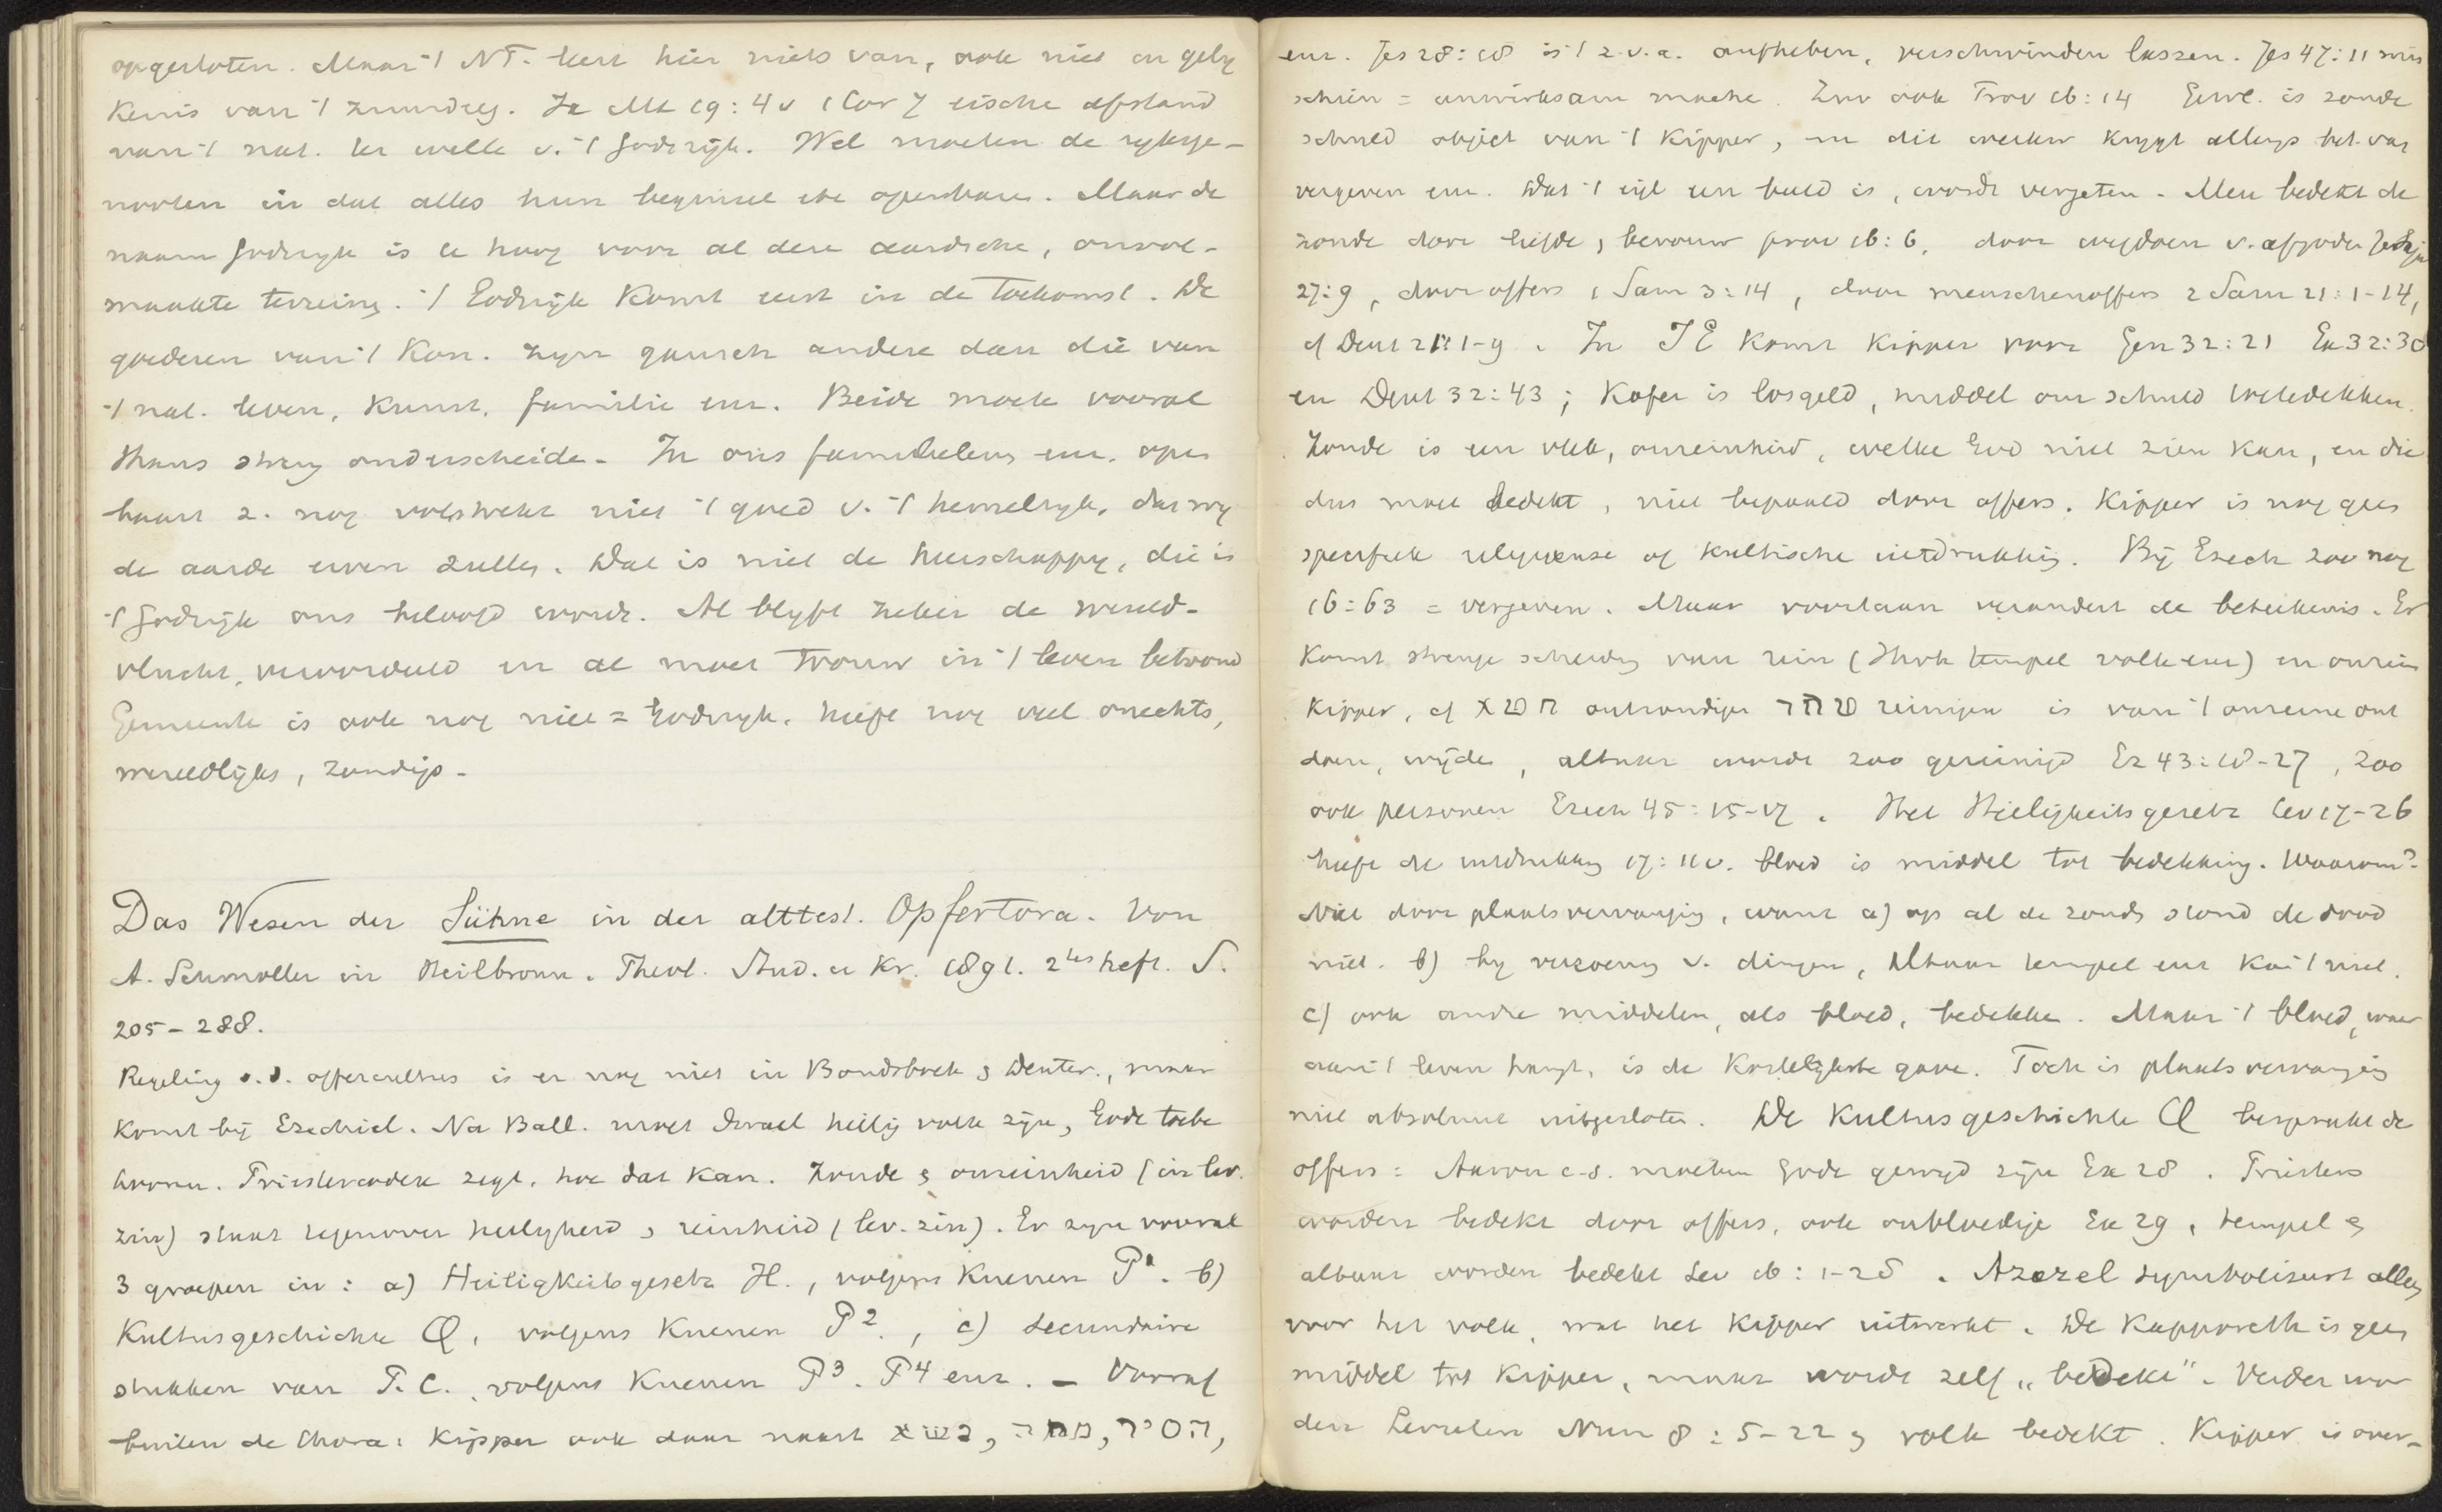 opgesloten. Maar 't NT. leert hier niets van, ook niet in gelij
kenis van 't zuurdeeg. Ja Mt 19:4v 1 Cor 7 eische afstand
van 't nat. ter wille v. 't Godsrijk. Wel moeten de rijksge-
nooten in dat alles hun beginsel openbaren. Maar de
naam Godsrijk is te hoog voor al deze aardsche, onvol-
maakte terreins. 't Godsrijk komt eerst in de toekomst. De
goederen van 't Kon. zijn gansch andere dan die van
't nat. leven, Kunst, familie enz. Beide moete vooral
thans streng onderscheide. In ons familieleven enz. open
baart z. nog volstrekt niet 't goed v. 't hemelrijk, dat wij
de aarde erven zullen. Dat is niet de heerschappij, die in
't Godsrijk ons beloofd wordt. Al blijft zeker de wereld-
vlucht veroordeeld en al moet trouw in 't leven betoond
Gemeente is ook nog niet = Godsrijk, heeft nog veel onechts,
wereldlijks, zondigs.
Das Wesen der Sühne in der alttest. Opfertora. Von
A. Schmoller in Heilbronn. Theol. Stud. u Kr. 1891. 2tes heft. S.
205-288.
Regeling v.d. offercultus is er nog niet in Bondsboek & Deuter., maar
komt bij Ezechiel. Na Ball. moet Israel heilig volk zijn, Gode toebe
hooren. Priestercodex zegt, hoe dat kan. Zonde & onreinheid (in lev.
zin) staat tegenover heiligheid & reinheid (lev. zin). Er zijn vooral
3 groepen in: a) Heiligkeitsgesetz H., volgens Kuenen P1. b)
Kultusgeschichte Q, volgens Kuenen P2., c) secundaire
stukken van P.C. volgens Kuenen P3. P4 enz. – Vooraf
buiten de thora: Kipper ook daar naast נשא, מחה, הסיר,
enz. Jes 28:18 is 't z.v.a. aufheben, verschwinden lassen. Jes 47:11 mis
schien = unwirksam mache. Zoo ook Prov 16:14 Gew. is zonde
schuld object van 't Kipper, en dit werkw krijgt allengs bet. van
vergeven enz. Dat 't eigl een beeld is, wordt vergeten. Men bedekt de
zonde door liefde, berouw prov 16:6, door wegdoen v. afgoden Jesaja
27:9, door offers 1 Sam 3:14, door menschenoffers 2 Sam 21:1-14,
cf Deut 21:1-9. In JE komt Kipper voor Gen 32:21 Ex 32:30
en Deut 32:43; Kofer is losgeld, middel om schuld te bedekken.
Zonde is een vlek, onreinheid, welke God niet zien kan, en die
dus moet bedekt, niet bepaald door offers. Kipper is nog geen
specifiek religieuse of kultische uitdrukking. Bij Ezech zoo nog
16:63 = vergeven. Maar voortaan verandert de beteekenis. Er
komt strenge scheiding van rein (Jhvh tempel volk enz) en onrein
Kipper, cf חטא ontzondigen טהר reinigen is van 't onreine ont
doen, wijden, altaar wordt zoo gereinigd Ez 43:18-27, zoo
ook personen Ezech 45:15-17. Het Heiligkeitsgesetz Lev 17-26
heeft de uitdrukking 17:11v. bloed is middel tot bedekking. Waarom?
Niet door plaatsvervanging, want a) op al de zonden stond de dood
niet. b) bij verzoening v. dingen, Altaar tempel enz kan 't niet.
c) ook andre middelen, als bloed, bedekken. Maar 't bloed, waar
aan 't leven hangt, is de kostelijkste gave. Toch is plaatsvervanging
niet absoluut uitgesloten. De Kultusgeschichte Q bespreekt de
offers: Aaron c.s. moeten Gode gewijd zijn Ex 28. Priesters
worden bedekt door offers, ook onbloedige Ex 29, tempel &
altaar worden bedekt Lev 16:1-28. Azazel symboliseert alleen
voor het volk, wat het Kipper uitwerkt. De Kapporeth is geen
middel tot Kipper, maar wordt zelf „bedekt". Verder wor
den Levieten Num 8:5-22 & volk bedekt. Kipper is over-